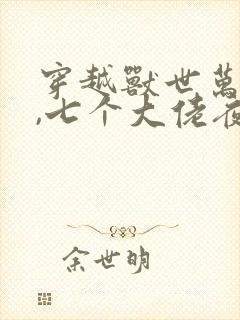 穿越獸世萬
,七个大佬夜
余世明